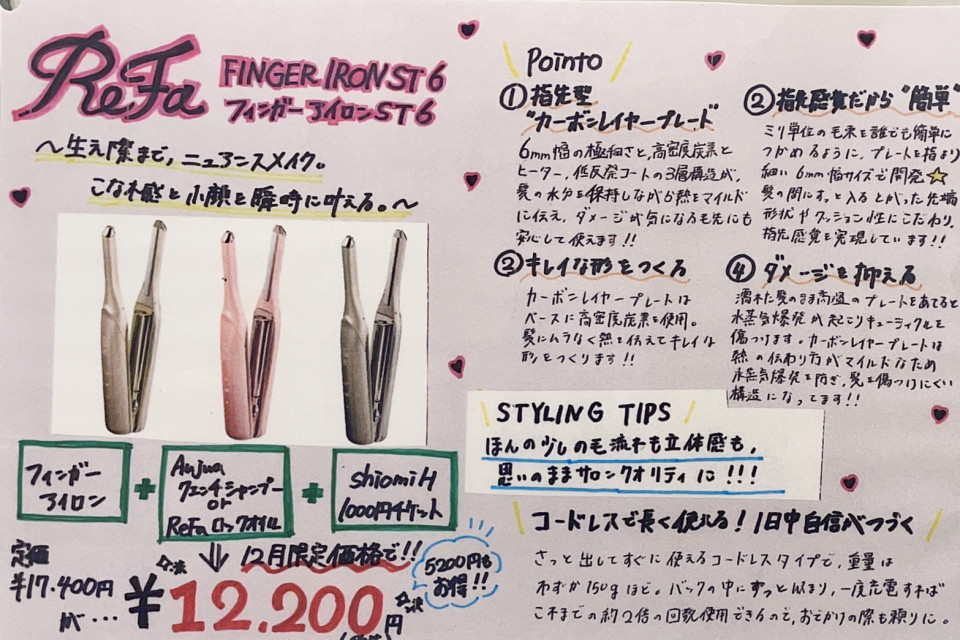 ReFa FINGER IRON ST6
フィンガーアイロンST6
〜生え際まで、ニュアンスメイク。
こなれ感と小顔を瞬時に叶える。〜
フィンガー
アイロン
+
Aujua
クエンチシャンプー
or
ReFaロックオイル
+
shiomi H
1000円チケット
定価
¥17.400円
が…
12月限定価格で!!
¥12.200円
5200円も
お得!!
Pointo
①指先型
"カーボンレイヤープレード"
6mm幅の極細さと、高密度炭素と
ヒーター、低反発コートの3層構造が、
髪の水分を保持しながら熱をマイルド
に伝え、ダメージが気になる毛先にも
安心して使えます!!
②指先感覚だから"簡単"
ミリ単位の毛束を誰でも簡単に
つかめるように、プレートを指より
細い6mm幅サイズで開発☆
髪の間にすっと入るとがった先端
形状やクッション性にこだわり、
指先感覚を実現しています!!
②キレイな形をつくる
カーボンレイヤープレートは
ベースに高密度炭素を使用。
髪にムラなく熱を伝えてキレイな
形をつくります!!
④ダメージを抑える
濡れた髪のまま高温のプレートをあてると
水蒸気爆発が起こりキューティクルを
傷つけます。カーボンレイヤープレートは
熱の伝わり方がマイルドなため
水蒸気爆発を防ぎ、髪を傷つけにくい
構造になってます!!
STYLING TIPS
ほんの少しの毛流れも立体感も、
思いのままサロンクオリティに!!!
コードレスで長く使える!1日中自信がつづく
さっと出してすぐに使えるコードレスタイプで、重量は
わずか150gほど。バックの中にすっと収まり、一度充電すれば
これまでの約2倍の回数使用できるので、おでかけの際も頼りに。